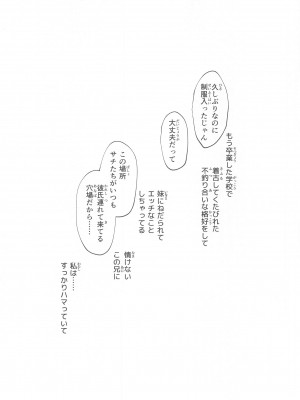 もう卒業した学校で
着古してくたびれた
不釣り合いな格好をして
久しぶりなのに
制服入ったじゃん
大丈夫だって
妹にねだられて
エッチなこと
しちゃってる
この場所
サチたちがいつも
彼氏連れて来てる
穴場だから……
情けない
この兄に
私は……
すっかりハマっていて